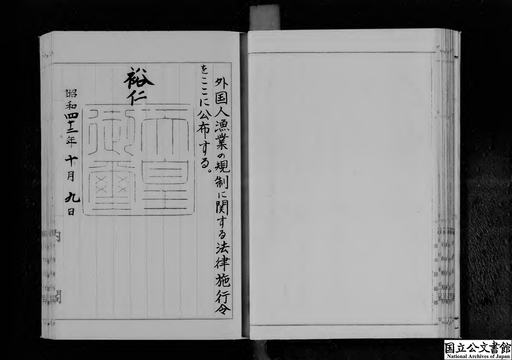 外国人漁業の規制に関する法律施行令
をここに公布する。
裕仁
天皇
御璽
昭和四十二年十月九日
国立公文書館
National Archives of Japan